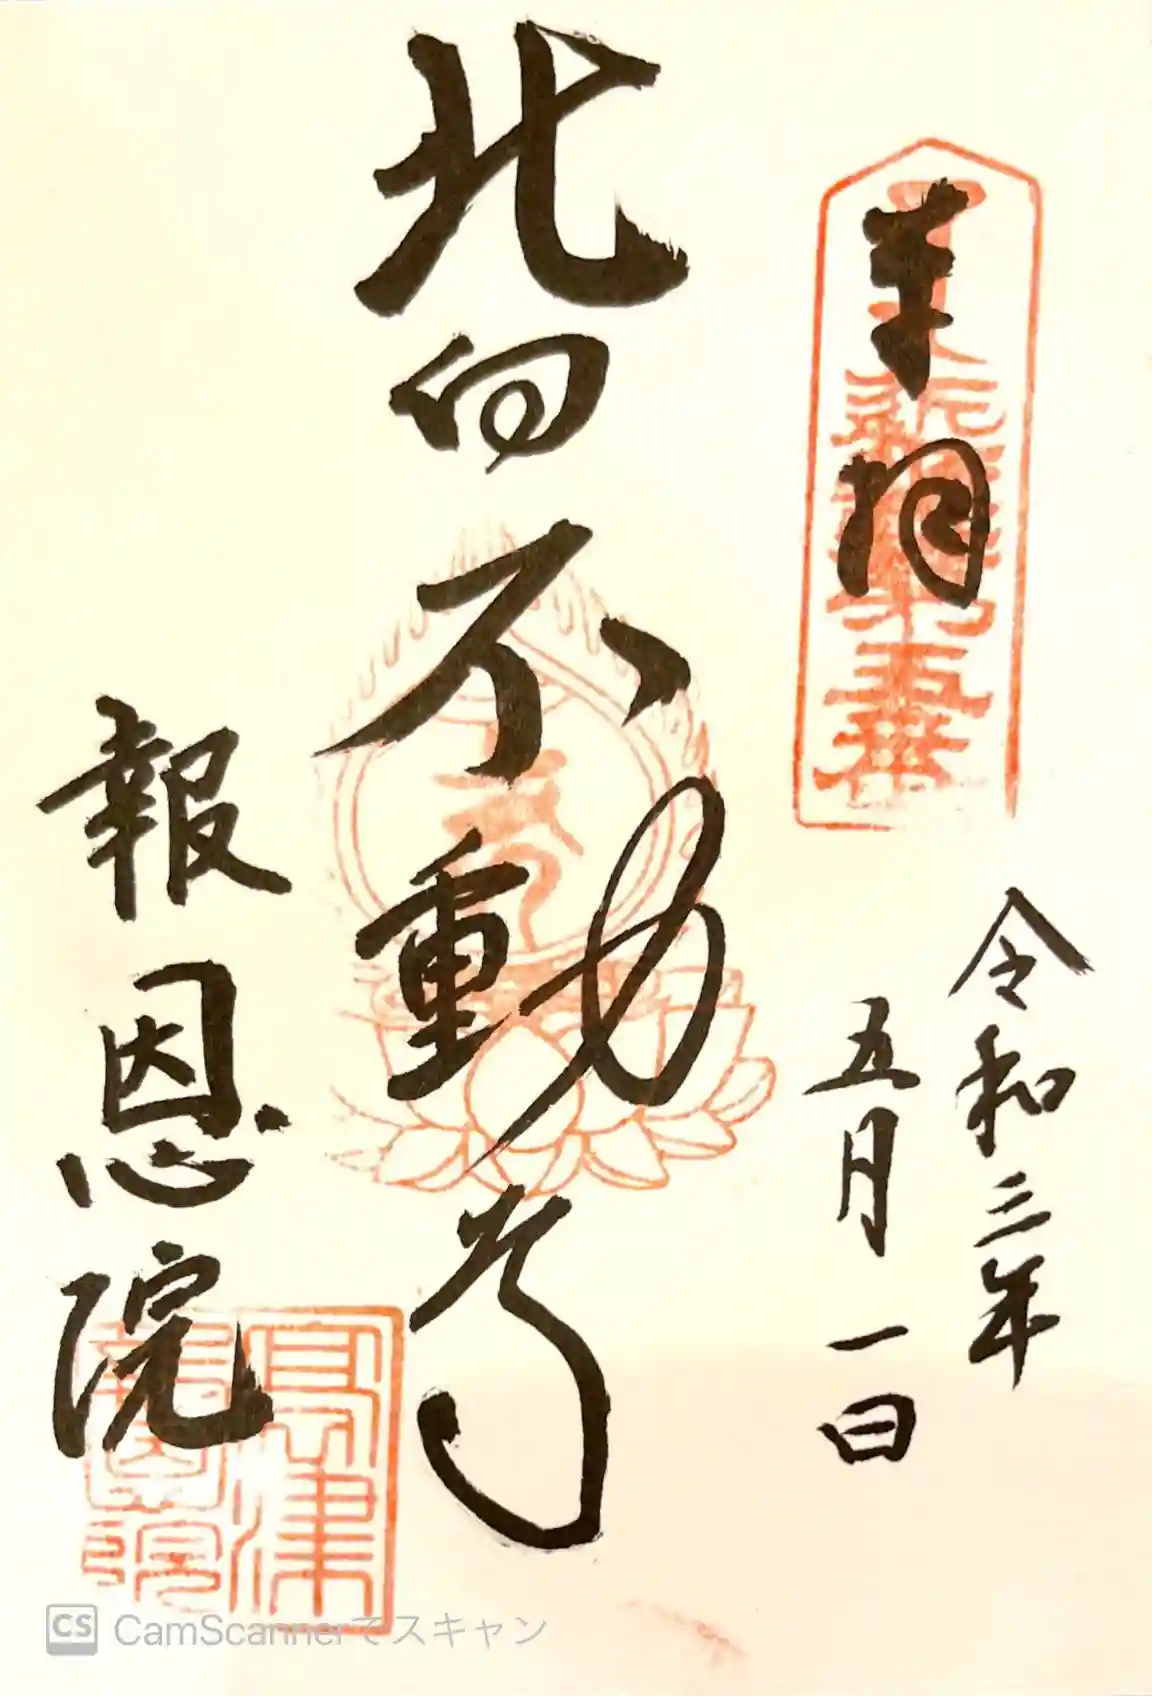 奉拝
令和三年
五月一日
北向不動尊
報恩院
高津
報恩院
CS CamScannerでスキャン